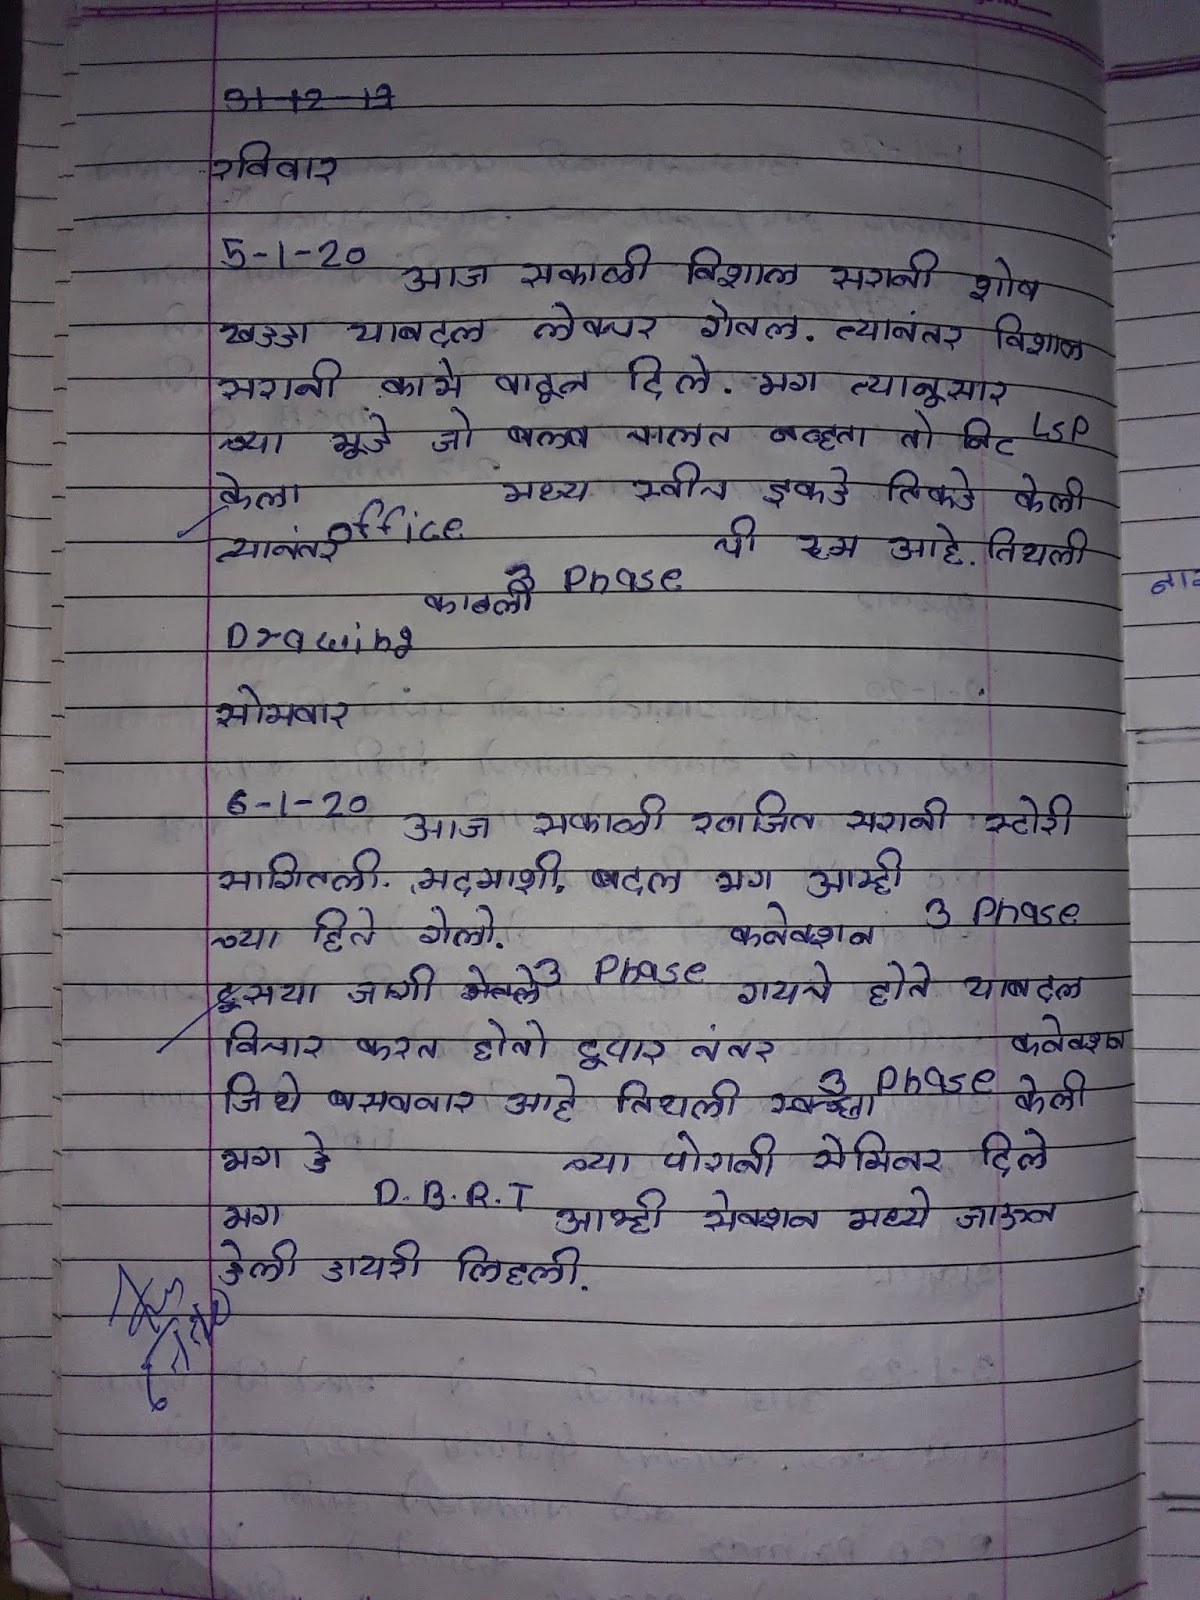 31-12-19
रविवार
5-1-20
आज सकाळी विशाल सरानी शोष
खड्डा याबद्दल लेक्चर गेतल. त्यानंतर विशाल
सरानी कामे वाटून दिले. मग त्यानुसार
LSP
च्या मूडे जो बलब चालत नव्हता तो निट
केला मध्य स्वीच इकडे तिकडे केली
त्यानंतर office ची रूम आहे. तिथली
3 Phase
काबली
Drawing
सोमवार
6-1-20
आज सकाळी रणजित सरानी स्टोरी
सागितली. मदमाशी, बद्दल मग आम्ही
च्या हिते गेलो. कनेक्शन 3 Phase
दूसर्‍या जागी 3 Phase गयचे होते याबद्दल
विचार करत होतो दूपार नंतर कनेक्शन
जिथे बसवनार आहे तिथली स्वच्छता 3 Phase केली
मग डे च्या पोरानी सेमिनर दिले
D.B.R.T
मग आम्ही सेक्शन मध्ये जाऊन
डेली डायरी लिहली.